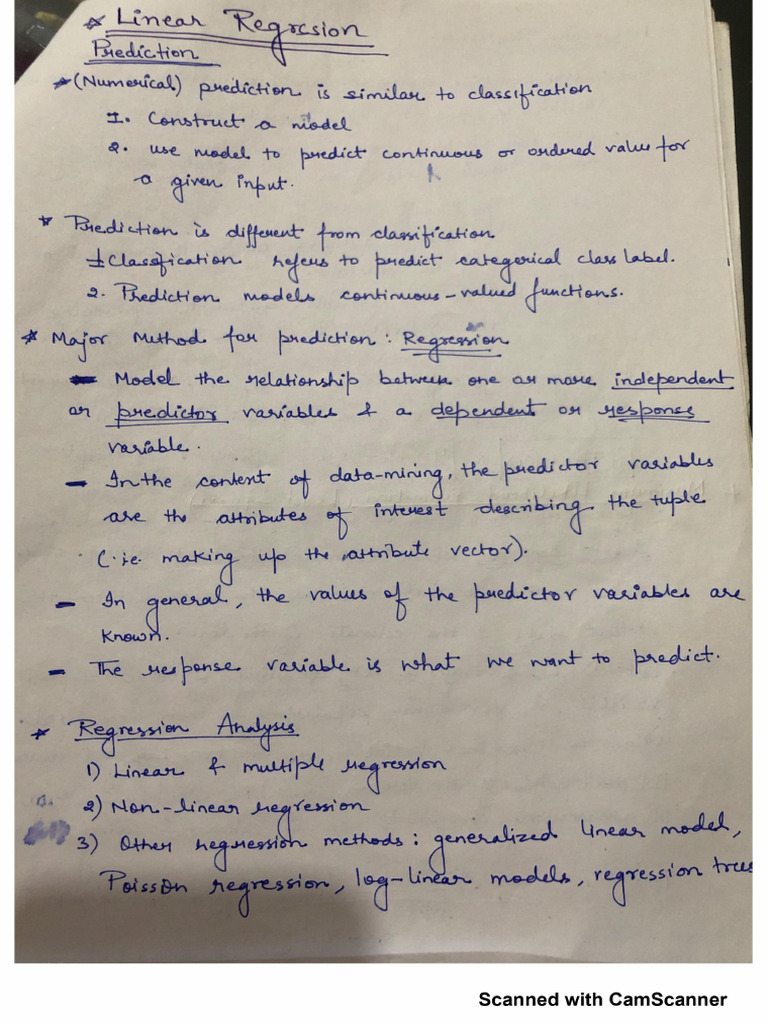 * Linear Regression
Prediction
* (Numerical) prediction is similar to classification
1. Construct a model
2. use model to predict continuous or ordered value for
a given input.
* Prediction is different from classification
1. Classification refers to predict categerical class label.
2. Prediction models continuous-valued functions.
* Major Method for prediction : Regression
- Model the relationship between one or more independent
or predictor variables & a dependent or response
variable.
- In the content of data-mining, the predictor variables
are the attributes of interest describing the tuple
(i.e. making up the attribute vector).
- In general, the values of the predictor variables are
known.
- The response variable is what we want to predict.
* Regression Analysis
1) Linear & multiple regression
2) Non-linear regression
3) Other regression methods : generalized linear model,
Poisson regression, log-linear models, regression trees
Scanned with CamScanner